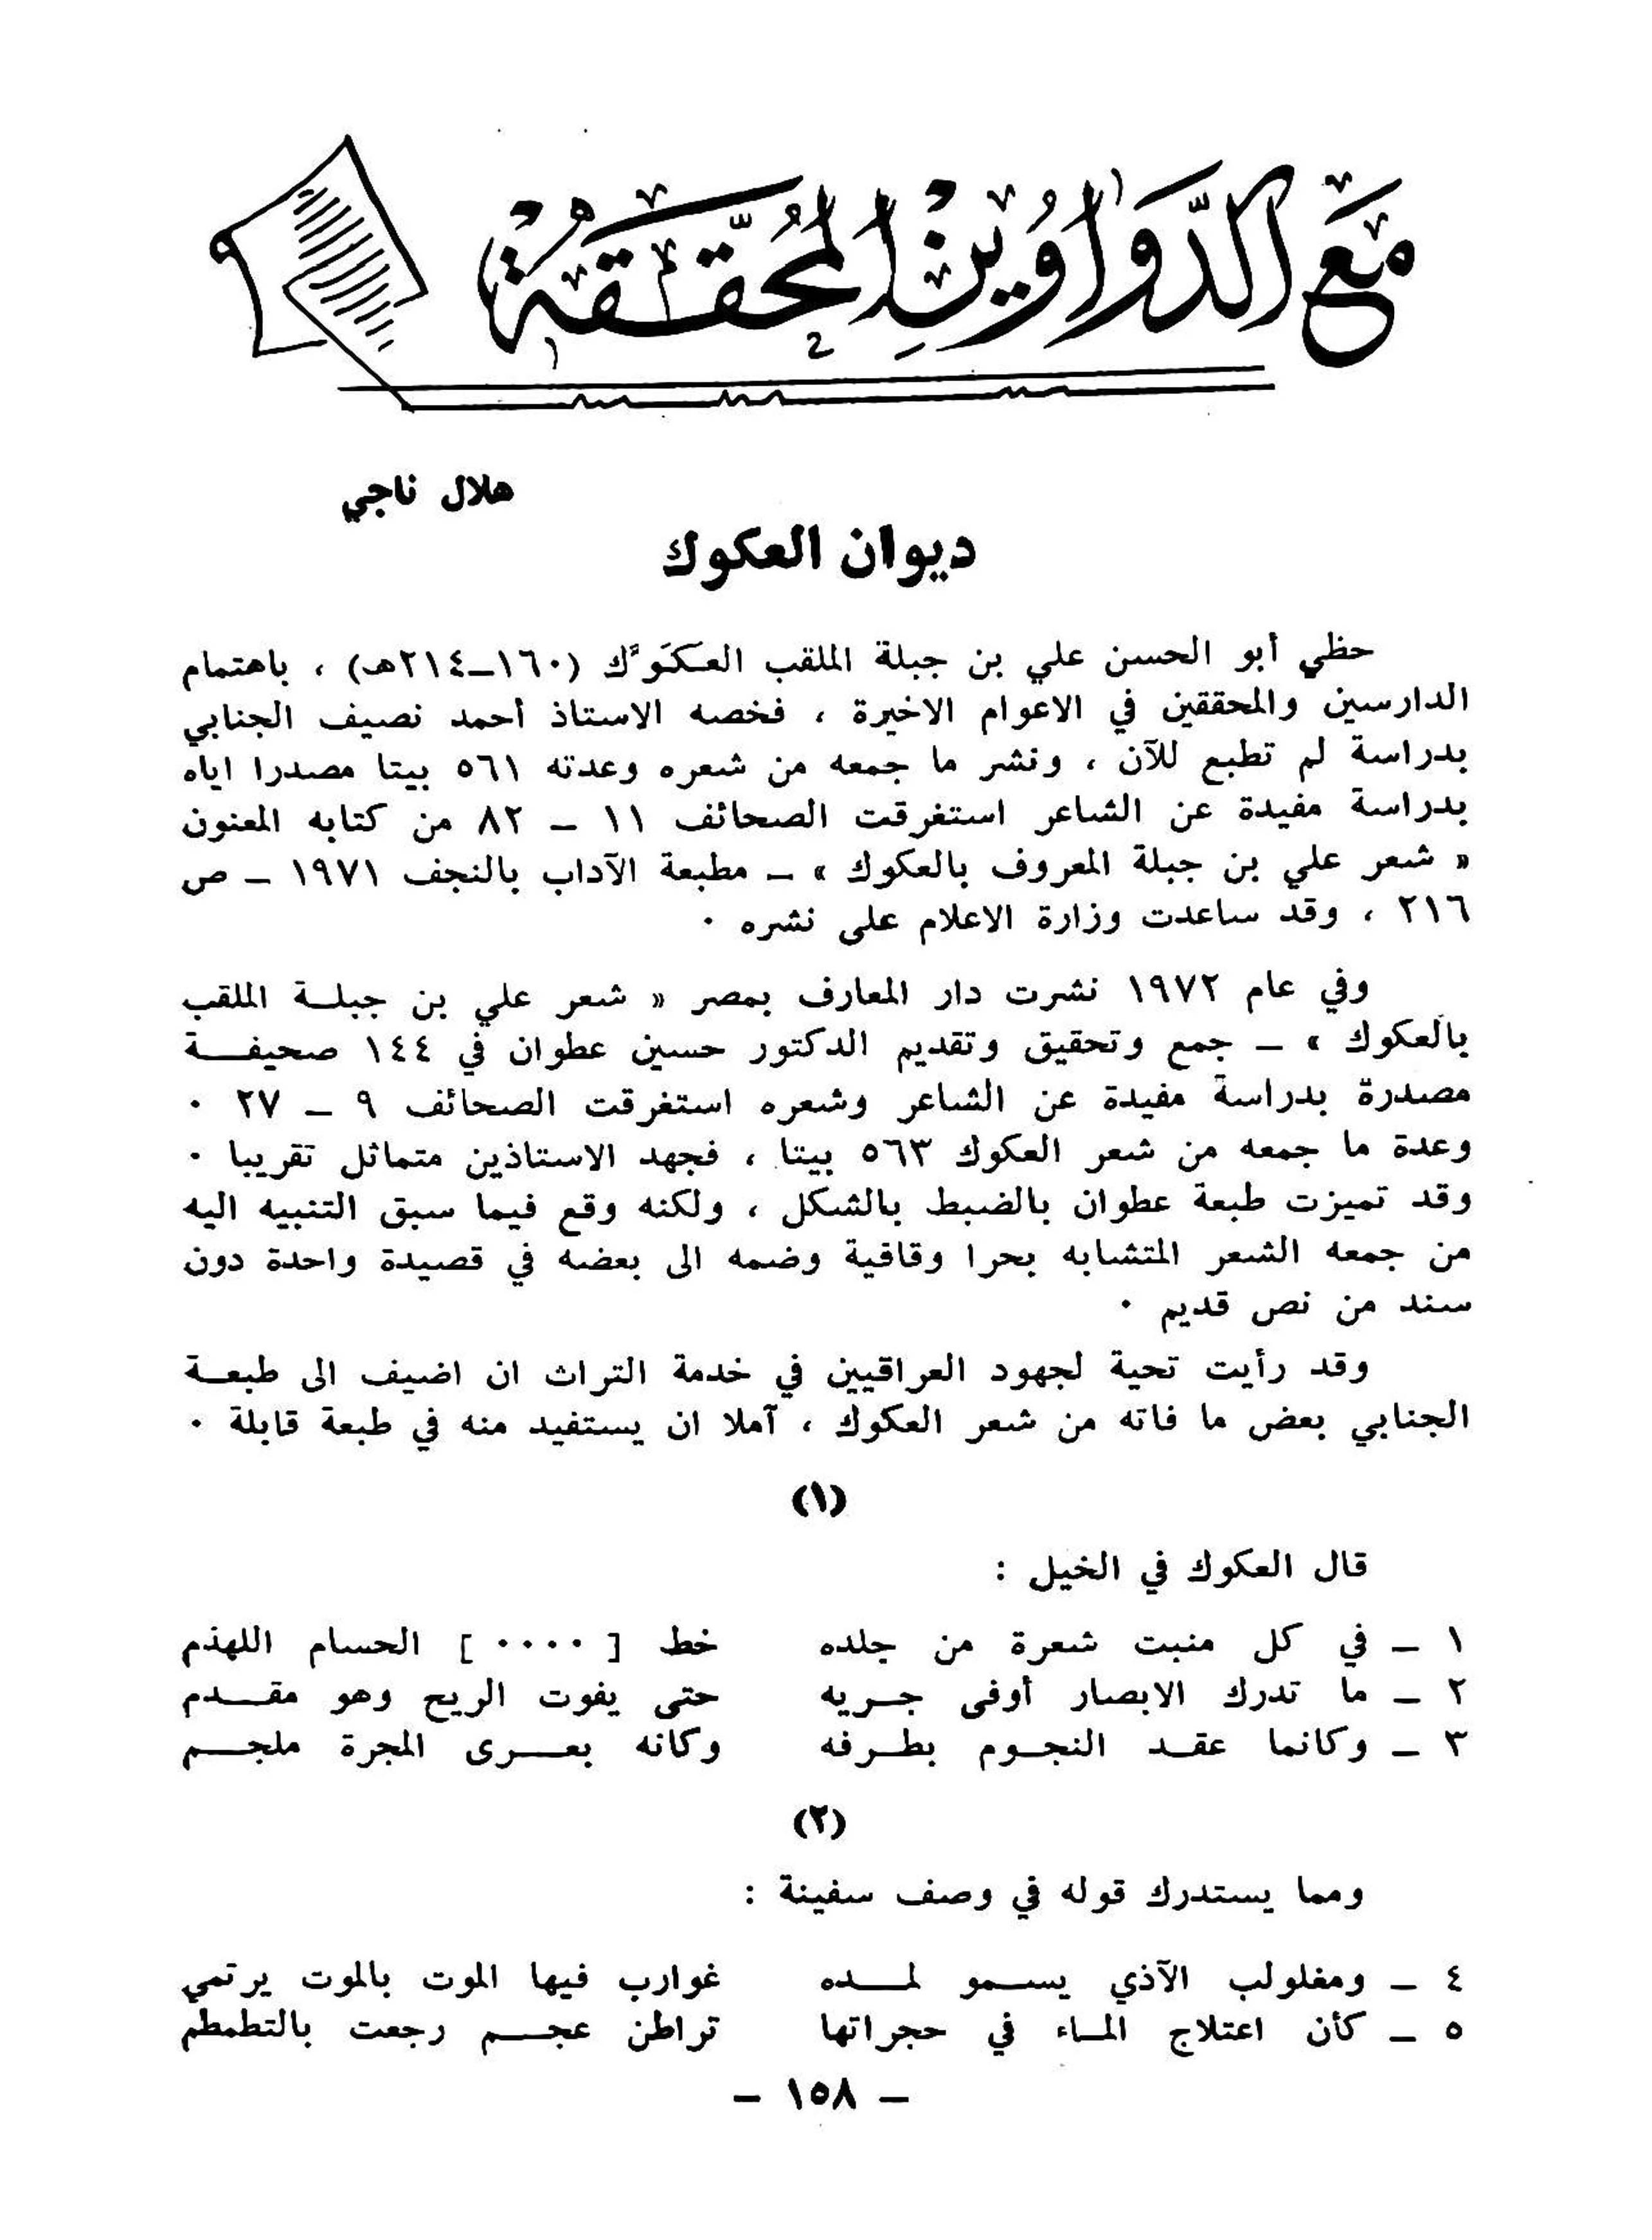 مَعَ الدَّوَاوِينِ المُحَقَّقَةِ
هلال ناجي
ديوان العكوك
حظي أبو الحسن علي بن جبلة الملقب العكَوَّك (١٦٠–٢١٤هـ) ، باهتمام
الدارسين والمحققين في الاعوام الاخيرة ، فخصه الاستاذ أحمد نصيف الجنابي
بدراسة لم تطبع للآن ، ونشر ما جمعه من شعره وعدته ٥٦١ بيتا مصدرا اياه
بدراسة مفيدة عن الشاعر استغرقت الصحائف ١١ – ٨٢ من كتابه المعنون
« شعر علي بن جبلة المعروف بالعكوك » – مطبعة الآداب بالنجف ١٩٧١ – ص
٢١٦ ، وقد ساعدت وزارة الاعلام على نشره ٠
وفي عام ١٩٧٢ نشرت دار المعارف بمصر « شعر علي بن جبلة الملقب
بالعكوك » – جمع وتحقيق وتقديم الدكتور حسين عطوان في ١٤٤ صحيفة
مصدرة بدراسة مفيدة عن الشاعر وشعره استغرقت الصحائف ٩ – ٢٧ ٠
وعدة ما جمعه من شعر العكوك ٥٦٣ بيتا ، فجهد الاستاذين متماثل تقريبا ٠
وقد تميزت طبعة عطوان بالضبط بالشكل ، ولكنه وقع فيما سبق التنبيه اليه
من جمعه الشعر المتشابه بحرا وقافية وضمه الى بعضه في قصيدة واحدة دون
سند من نص قديم ٠
وقد رأيت تحية لجهود العراقيين في خدمة التراث ان اضيف الى طبعة
الجنابي بعض ما فاته من شعر العكوك ، آملا ان يستفيد منه في طبعة قابلة ٠
(١)
قال العكوك في الخيل :
١ – في كل منبت شعرة من جلده خط [ ٠٠٠٠ ] الحسام اللهذم
٢ – ما تدرك الابصار أوفى جريه حتى يفوت الريح وهو مقدم
٣ – وكانما عقد النجوم بطرفه وكانه بعرى المجرة ملجم
(٢)
ومما يستدرك قوله في وصف سفينة :
٤ – ومغلولب الآذي يسمو لمده غوارب فيها الموت بالموت يرتمي
٥ – كأن اعتلاج الماء في حجراتها تراطن عجم رجعت بالتطمطم
– ١٥٨ –